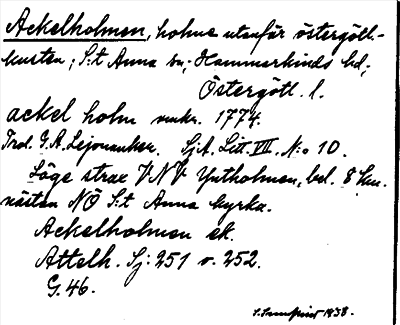 Ackelholmen, holme utanför östergötl.-
kusten; S:t Anna sn; Hammarkinds hd;
Östergötl. l.
ackel holm omkr. 1774.
Trol. G. A. Lejonanker. Sj.A. Litt. VIII. N:o 10.
Läge strax VNV Ytholmen, bel. 8 km.
nästan NÖ S:t Anna kyrka.
Ackelholmen ek.
Attelh. Sj: 251 v. 252.
G. 46.
1938.